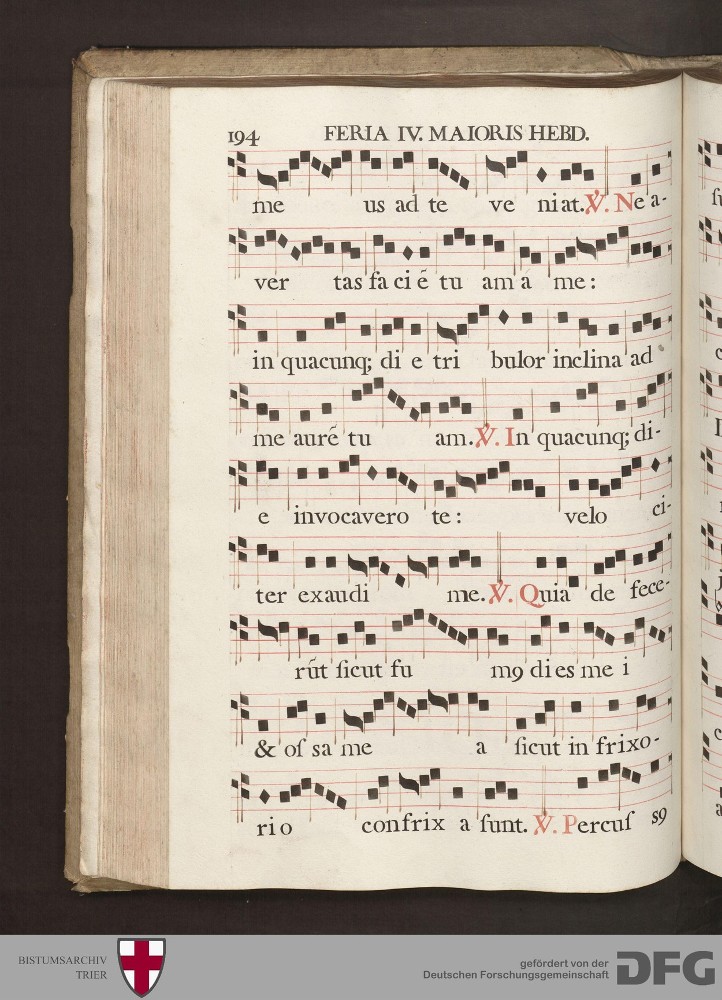 194 FERIA IV. MAIORIS HEBD.
me us ad te ve niat. ℣. Ne a-
ver tas faciē tu am á me:
in quacunq; di e tri bulor inclina ad
me aurē tu am. ℣. In quacunq; di-
e invocavero te: velo ci-
ter exaudi me. ℣. Quia de fece-
rūt ſicut fu mꝯ dies me i
& oſ sa me a ſicut in frixo-
rio confrix a ſunt. ℣. Percuſ sꝯ
BISTUMSARCHIV
TRIER
gefördert von der
Deutschen Forschungsgemeinschaft
DFG